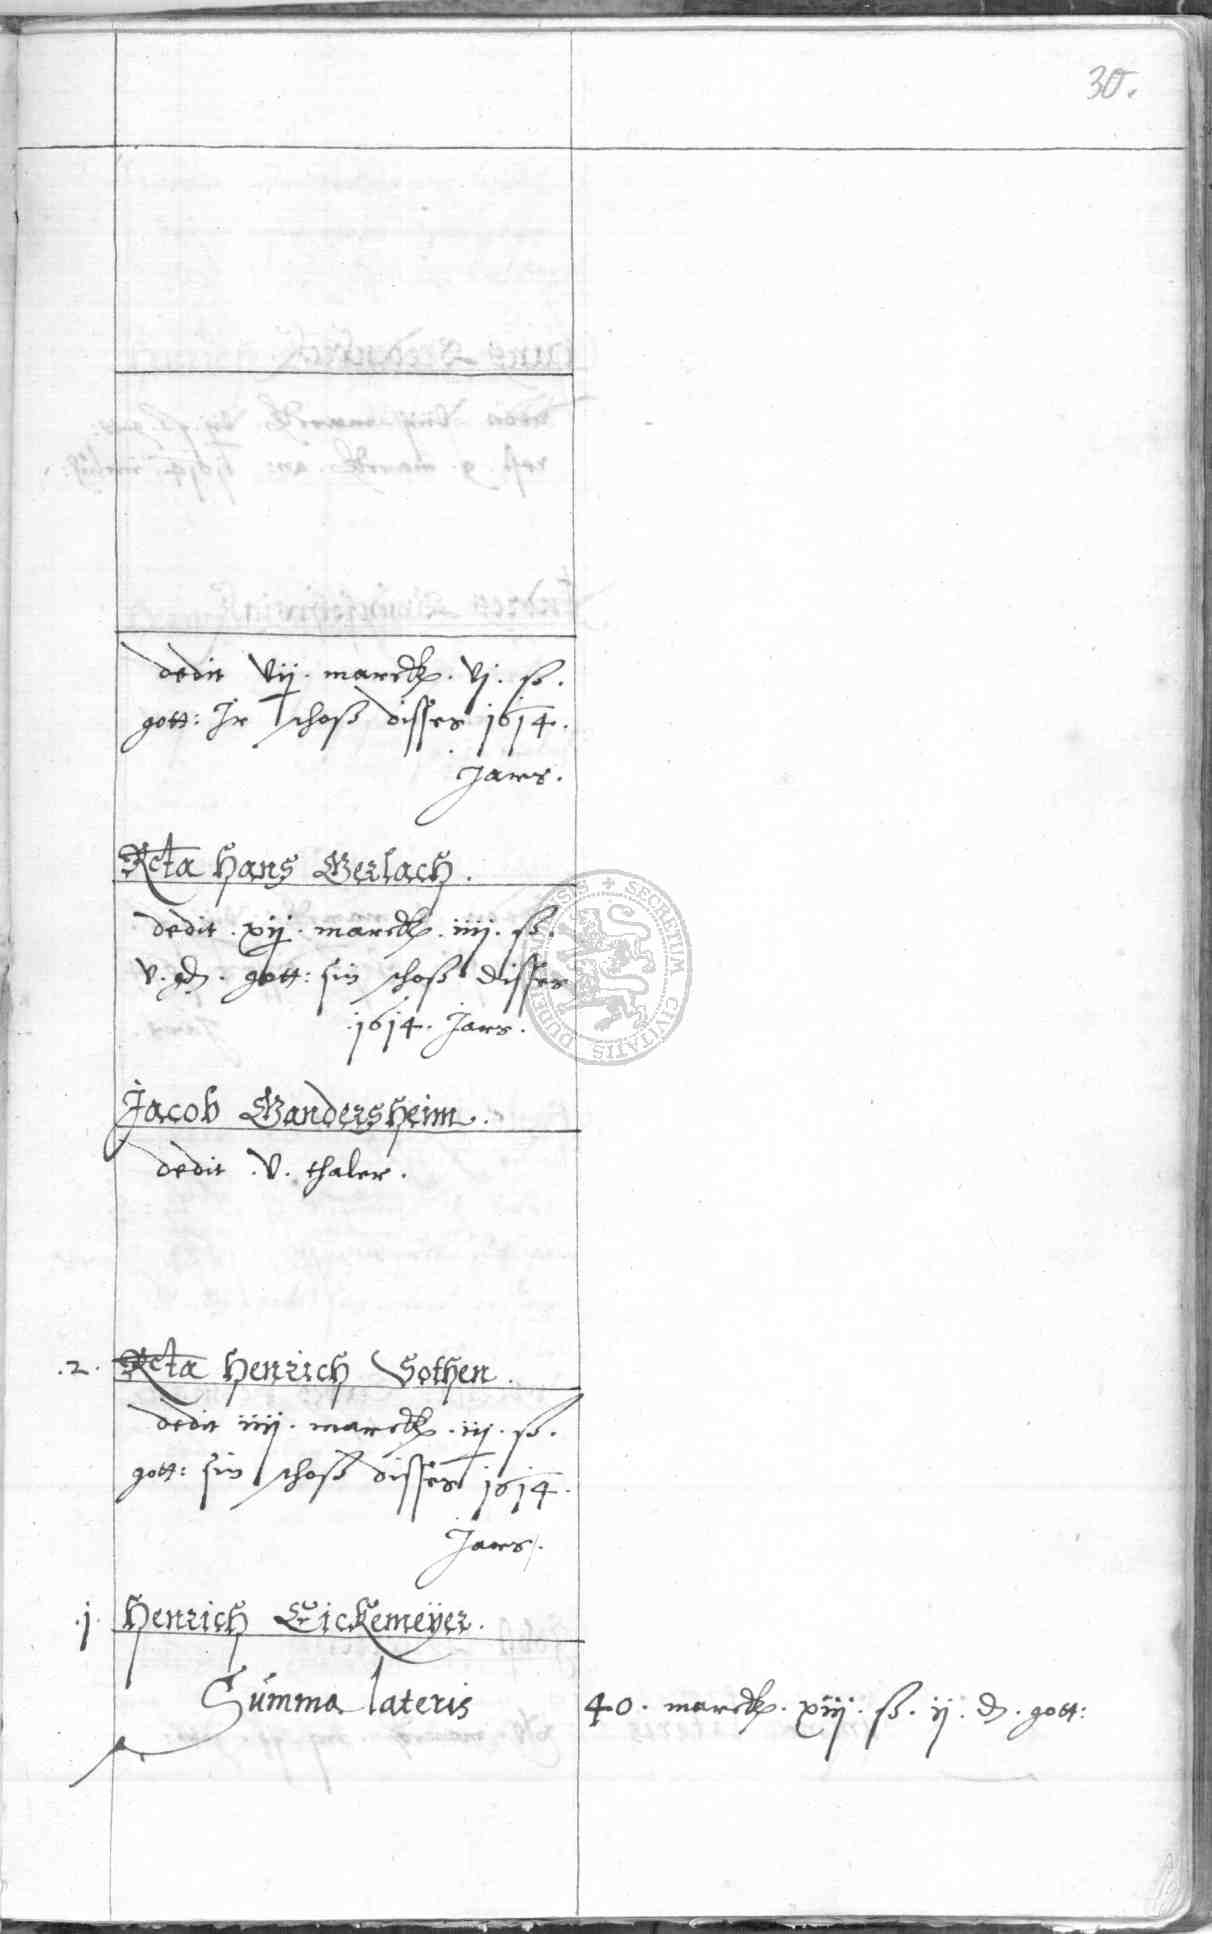 30.
dedit vij. marck. vj. ß.
gott: Jr schoß disses 1614.
Jars.
Rcta Hans Gerlach.
dedit. xij. marck. iiij. ß.
v. ₰. gott: sin schoß disses
.1614. Jars.
Jacob Gandersheim.
dedit .v. thaler.
.2. Rcta Henrich Sothen.
dedit iiij. marck. iij. ß.
gott: sin schoß disses 1614.
Jars.
.j. Henrich Eickemeÿer.
Summa lateris 40. marck. xiij. ß. ij. ₰. gott:
SECRETUM CIVITATIS